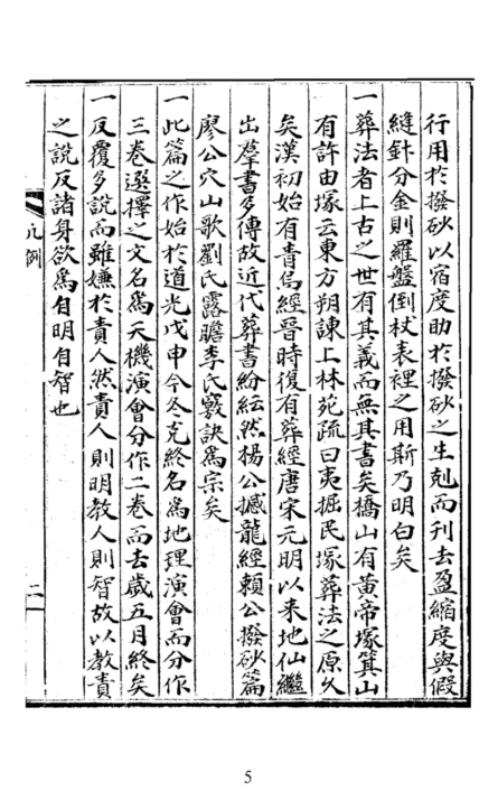 行用於撥砂以宿度助於撥砂之生剋而刊去盈縮度與假
縫針分金則羅盤倒杖表裡之用斯乃明白矣
一葬法者上古之世有其義而無其書矣橋山有黃帝塚箕山
有許由塚云東方朔諫上林苑疏曰夷掘民塚葬法之原久
矣漢初始有青烏經晉時復有葬經唐宋元明以来地仙繼
出羣書多傳故近代葬書紛紜然楊公撼龍經賴公撥砂篇
廖公穴山歌劉氏露膽李氏竅訣爲宗矣
一此篇之作始於道光戊申今冬克終名爲地理演會而分作
三卷選擇之文名爲天機演會分作二卷而去歲五月終矣
一反覆多說而雖嫌於責人然責人則明教人則智故以教責
之說反諸身欲爲自明自智也
凡例
二
5